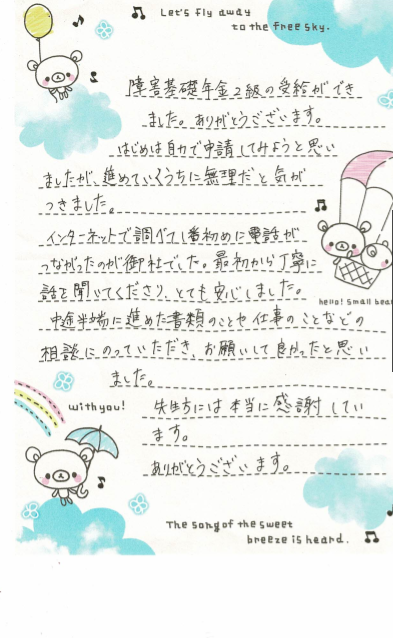 Let's fly away
to the free sky.
障害基礎年金2級の受給ができ
ました。ありがとうございます。
はじめは自力で申請してみようと思い
ましたが、進めていくうちに無理だと気が
つきました。
インターネットで調べて1番初めに電話が
つながったのが御社でした。最初から丁寧に
話を聞いてくださり、とても安心しました。
hello! small bear
中途半端に進めた書類のことや仕事のことなどの
相談にのっていただき、お願いして良かったと思い
ました。
with you!
先生方には本当に感謝してい
ます。
ありがとうございます。
The song of the sweet
breeze is heard.